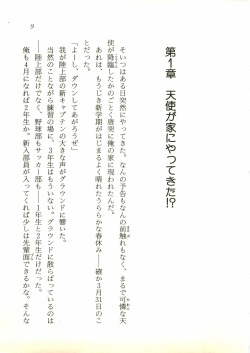 9
第1章 天使が家にやってきた!?
そいつはある日突然にやってきた。なんの予告もなんの前触れもなく、まるで可憐な天
使が降臨したかのごとく唐突に俺の家に現われたんだ。
あれは、もうじき新学期がはじまるよく晴れたうららかな春休み──確か3月31日のこ
とだった。
「よーし、ダウンしてあがろうぜ」
我が陸上部の新キャプテンの大きな声がグラウンドに響いた。
当然のことながら練習の場に、3年生はもういない。グラウンドに散らばっているのは
──陸上部だけでなく、野球部もサッカー部も──1年生と2年生だけだった。
俺も4月になれば2年生か。新入部員が入ってくれば少しは先輩面できるかな。そんな